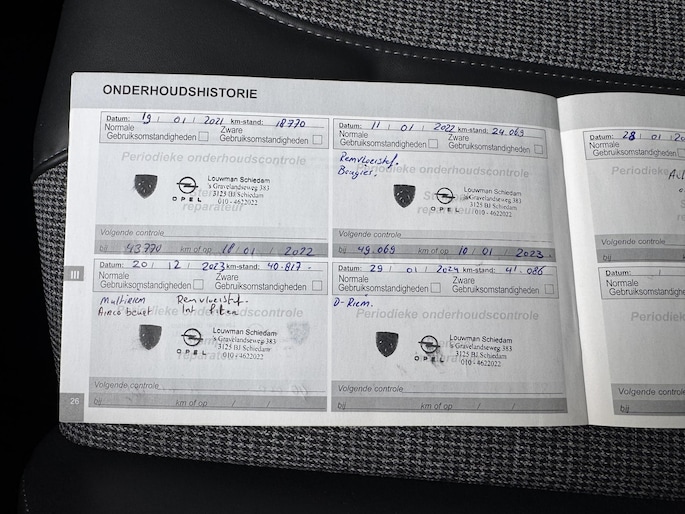 ONDERHOUDSHISTORIE
Datum: 19 / 01 / 2021 km-stand: 18770
Normale Gebruiksomstandigheden
Zware Gebruiksomstandigheden
Periodieke onderhoudscontrole
Louwman Schiedam
's Gravelandseweg 383
3125 BJ Schiedam
010 - 4622022
OPEL
reparateur
Volgende controle
bij 43770 km of op 18 / 01 / 2022
Datum: 11 / 01 / 2022 km-stand: 24.069
Normale Gebruiksomstandigheden
Zware Gebruiksomstandigheden
Remvloeistof.
Bougies.
Periodieke onderhoudscontrole
Louwman Schiedam
's Gravelandseweg 383
3125 BJ Schiedam
010 - 4622022
OPEL
reparateur
Volgende controle
bij 49.069 km of op 10 / 01 / 2023
Datum: 20 / 12 / 2023 km-stand: 40.817 -
Normale Gebruiksomstandigheden
Zware Gebruiksomstandigheden
Multiriem Remvloeistof.
Airco beurt Int filter
Louwman Schiedam
's Gravelandseweg 383
3125 BJ Schiedam
010 - 4622022
OPEL
Volgende controle
bij km of op / /
Datum: 29 / 01 / 2024 km-stand: 41.086
Normale Gebruiksomstandigheden
Zware Gebruiksomstandigheden
D-Riem.
Periodieke onderhoudscontrole
Louwman Schiedam
's Gravelandseweg 383
3125 BJ Schiedam
010 - 4622022
OPEL
Volgende controle
bij km of op / /
III
26
Datum: 28 / 01
Normale
Gebruiksomstandigheden
Periodieke
Volgende controle
bij
Datum:
Normale
Gebruiksomstandigheden
Periodieke
Volgende controle
bij